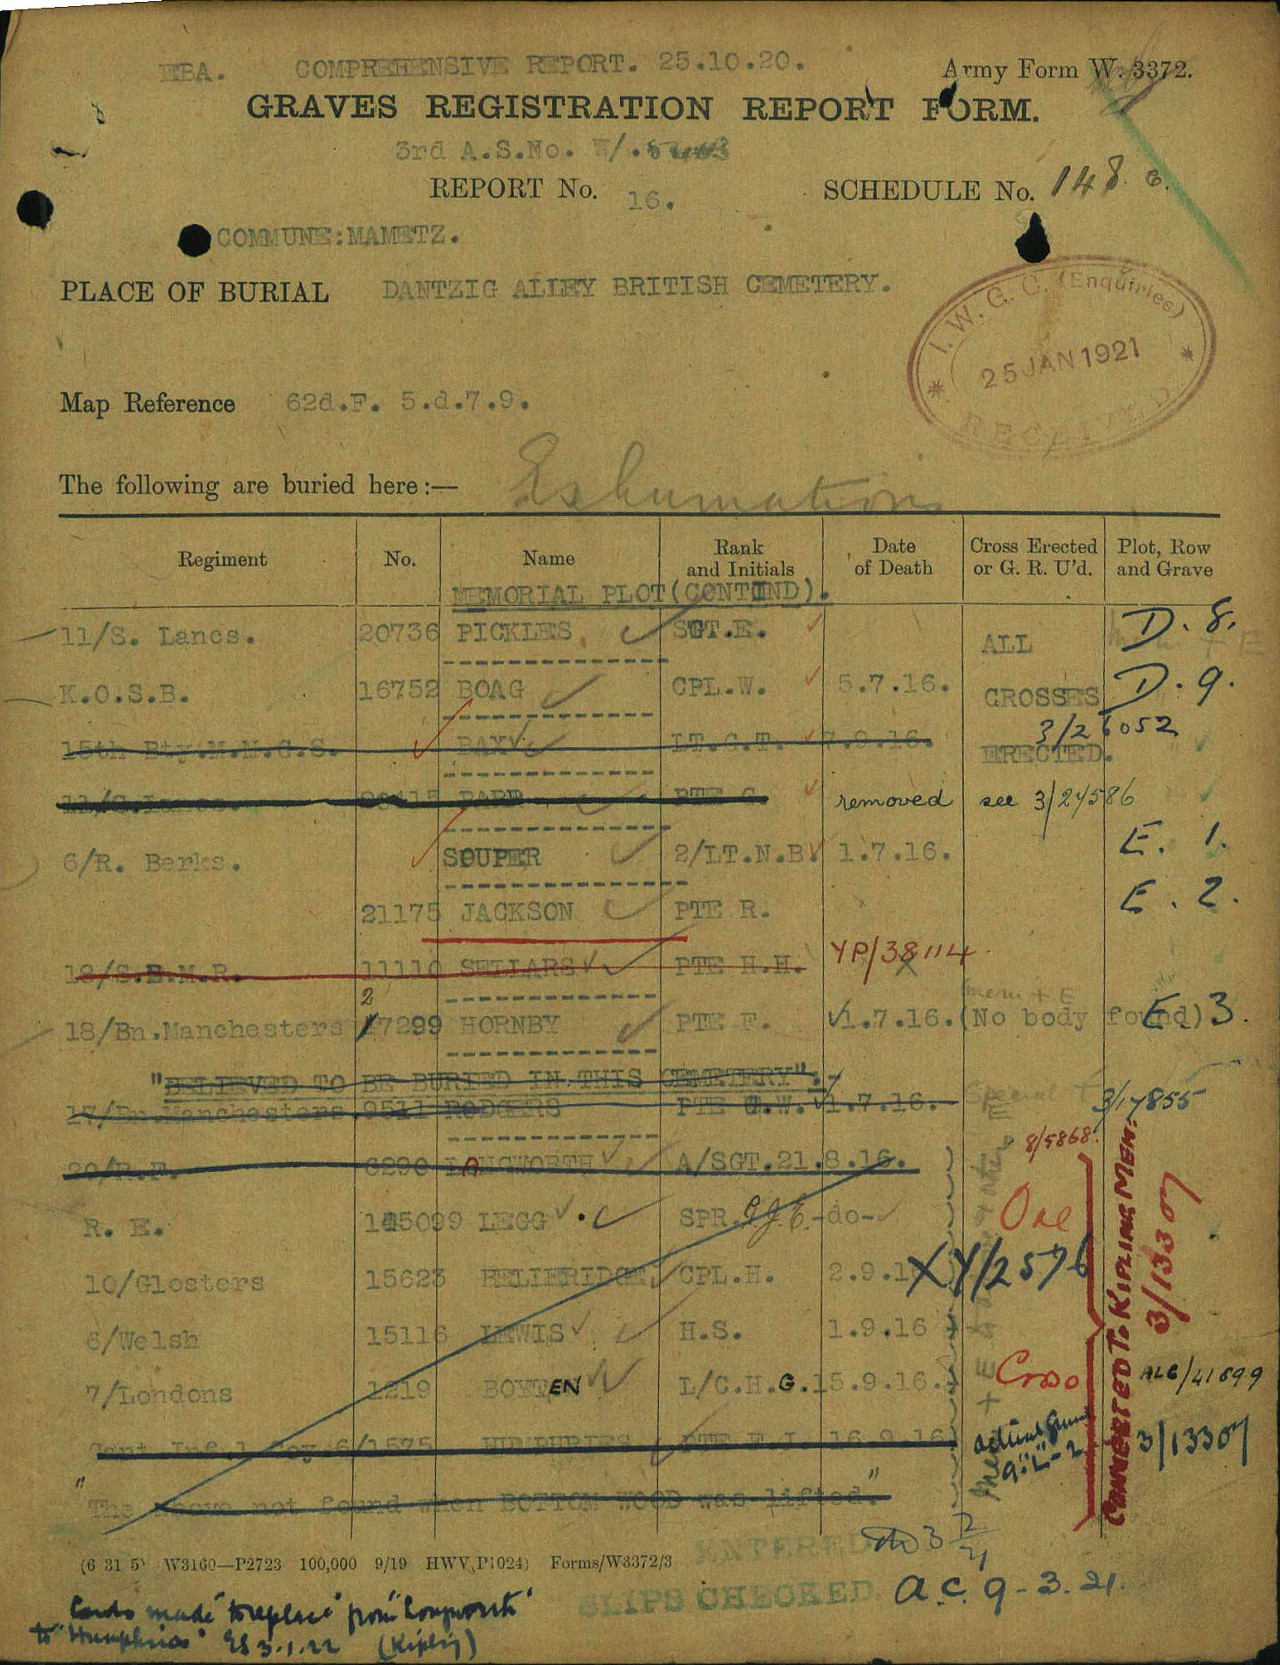 EBA. COMPREHENSIVE REPORT. 25.10.20. Army Form W. 3372.
GRAVES REGISTRATION REPORT FORM.
3rd A.S.No.
REPORT No. 16. SCHEDULE No. 148
COMMUNE:MAMETZ.
PLACE OF BURIAL DANTZIG ALLEY BRITISH CEMETERY.
I. W. G. C. (Enquiries)
25 JAN 1921
RECEIVED
Map Reference 62d.F. 5.d.7.9.
The following are buried here:— Exhumation
Regiment No. Name Rank and Initials Date of Death Cross Erected or G. R. U'd. Plot, Row and Grave
MEMORIAL PLOT(CONTIND).
11/S. Lancs. 20736 PICKLES SGT.E. ALL D. 8.
K.O.S.B. 16752 BOAG CPL.W. 5.7.16. CROSSES D. 9.
15th Bty.M.M.G.S. BAX LT.C.T. 7.9.16. ERECTED. 3/26052
11/S.Lancs. PARR PTE G removed see 3/24586
6/R. Berks. SOUPER 2/LT.N.B. 1.7.16. E. 1.
21175 JACKSON PTE R. E. 2.
18/S.B.M.R. 11110 SELLARS PTE H.H. YP/38114
18/Bn.Manchesters 27299 HORNBY PTE F. 1.7.16. (No body found) E. 3.
mem + E
"BELIEVED TO BE BURIED IN THIS CEMETERY".
17/Bn.Manchesters 9511 RODGERS PTE W. 1.7.16. Special 3/17855
20/R.F. 6290 LANGWORTH A/SGT. 21.8.16. 8/5868.
R. E. 145099 LEGG SPR. G.J.E. -do-
10/Glosters 15623 CPL.H. 2.9.1 XY/2576
6/Welsh 15116 LEWIS H.S. 1.9.16
7/Londons 1219 BOYTEN L/C.H.G. 15.9.16. Cross ALG/41899
Cont Inf.1 Coy.6/1575 HUMPHRIES PTE F.J. 16.9.16. 3/13307
CONNECTED TO KIPLING MEM: 3/13307
"The above not found when BOTTOM WOOD was lifted."
(6 31 5) W3160—P2723 100,000 9/19 HWV(P1024) Forms/W3372/3
ENTERED
SLIPS CHECKED a.c. 9-3.21.
Cards made "to replace" from "Longworth"
to "Humphries" ES 3.1.22 (Kiplig)